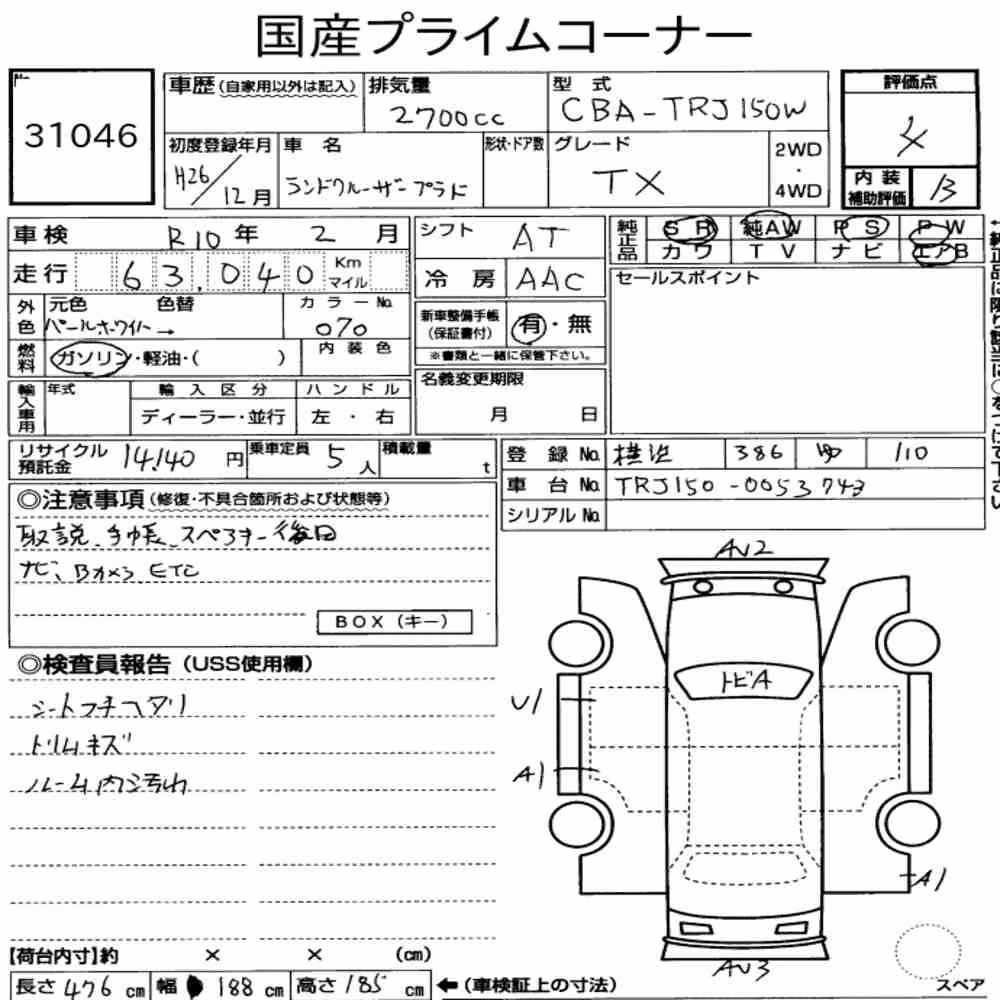 国産プライムコーナー
31046
車歴(自家用以外は記入) 排気量 2700cc 型式 CBA-TRJ150W 評価点 4
初度登録年月 H26/12月 車名 ランドクルーザープラド 形状・ドア数 グレード TX 2WD・4WD 内装補助評価 B
車検 R10年 2月 シフト AT 純正品 SR 純AW PS PW
カワ TV ナビ エアB
走行 63,040 Km マイル 冷房 AAC セールスポイント
外色 元色 パールホワイト→ 色替 カラーNo. 070 新車整備手帳(保証書付) 有・無
※書類と一緒に保管下さい。
燃料 ガソリン・軽油・( ) 内装色
輸入車用 年式 輸入区分 ハンドル 名義変更期限
ディーラー・並行 左・右 月 日
リサイクル預託金 14,140円 乗車定員 5人 積載量 t 登録No. 横浜 386 110
車台No. TRJ150-0053743
シリアルNo.
◎注意事項(修復・不具合箇所および状態等)
取説、手帳、スペアキー後日
ナビ、Bカメラ ETC
BOX(キー)
◎検査員報告(USS使用欄)
シートフチヘタリ
トリムキズ
ルーム内汚れ
AU2
トビA
U1
A1
A1
AU3
スペア
【荷台内寸】約 × × (cm)
長さ 476 cm 幅 188 cm 高さ 185 cm ←(車検証上の寸法)